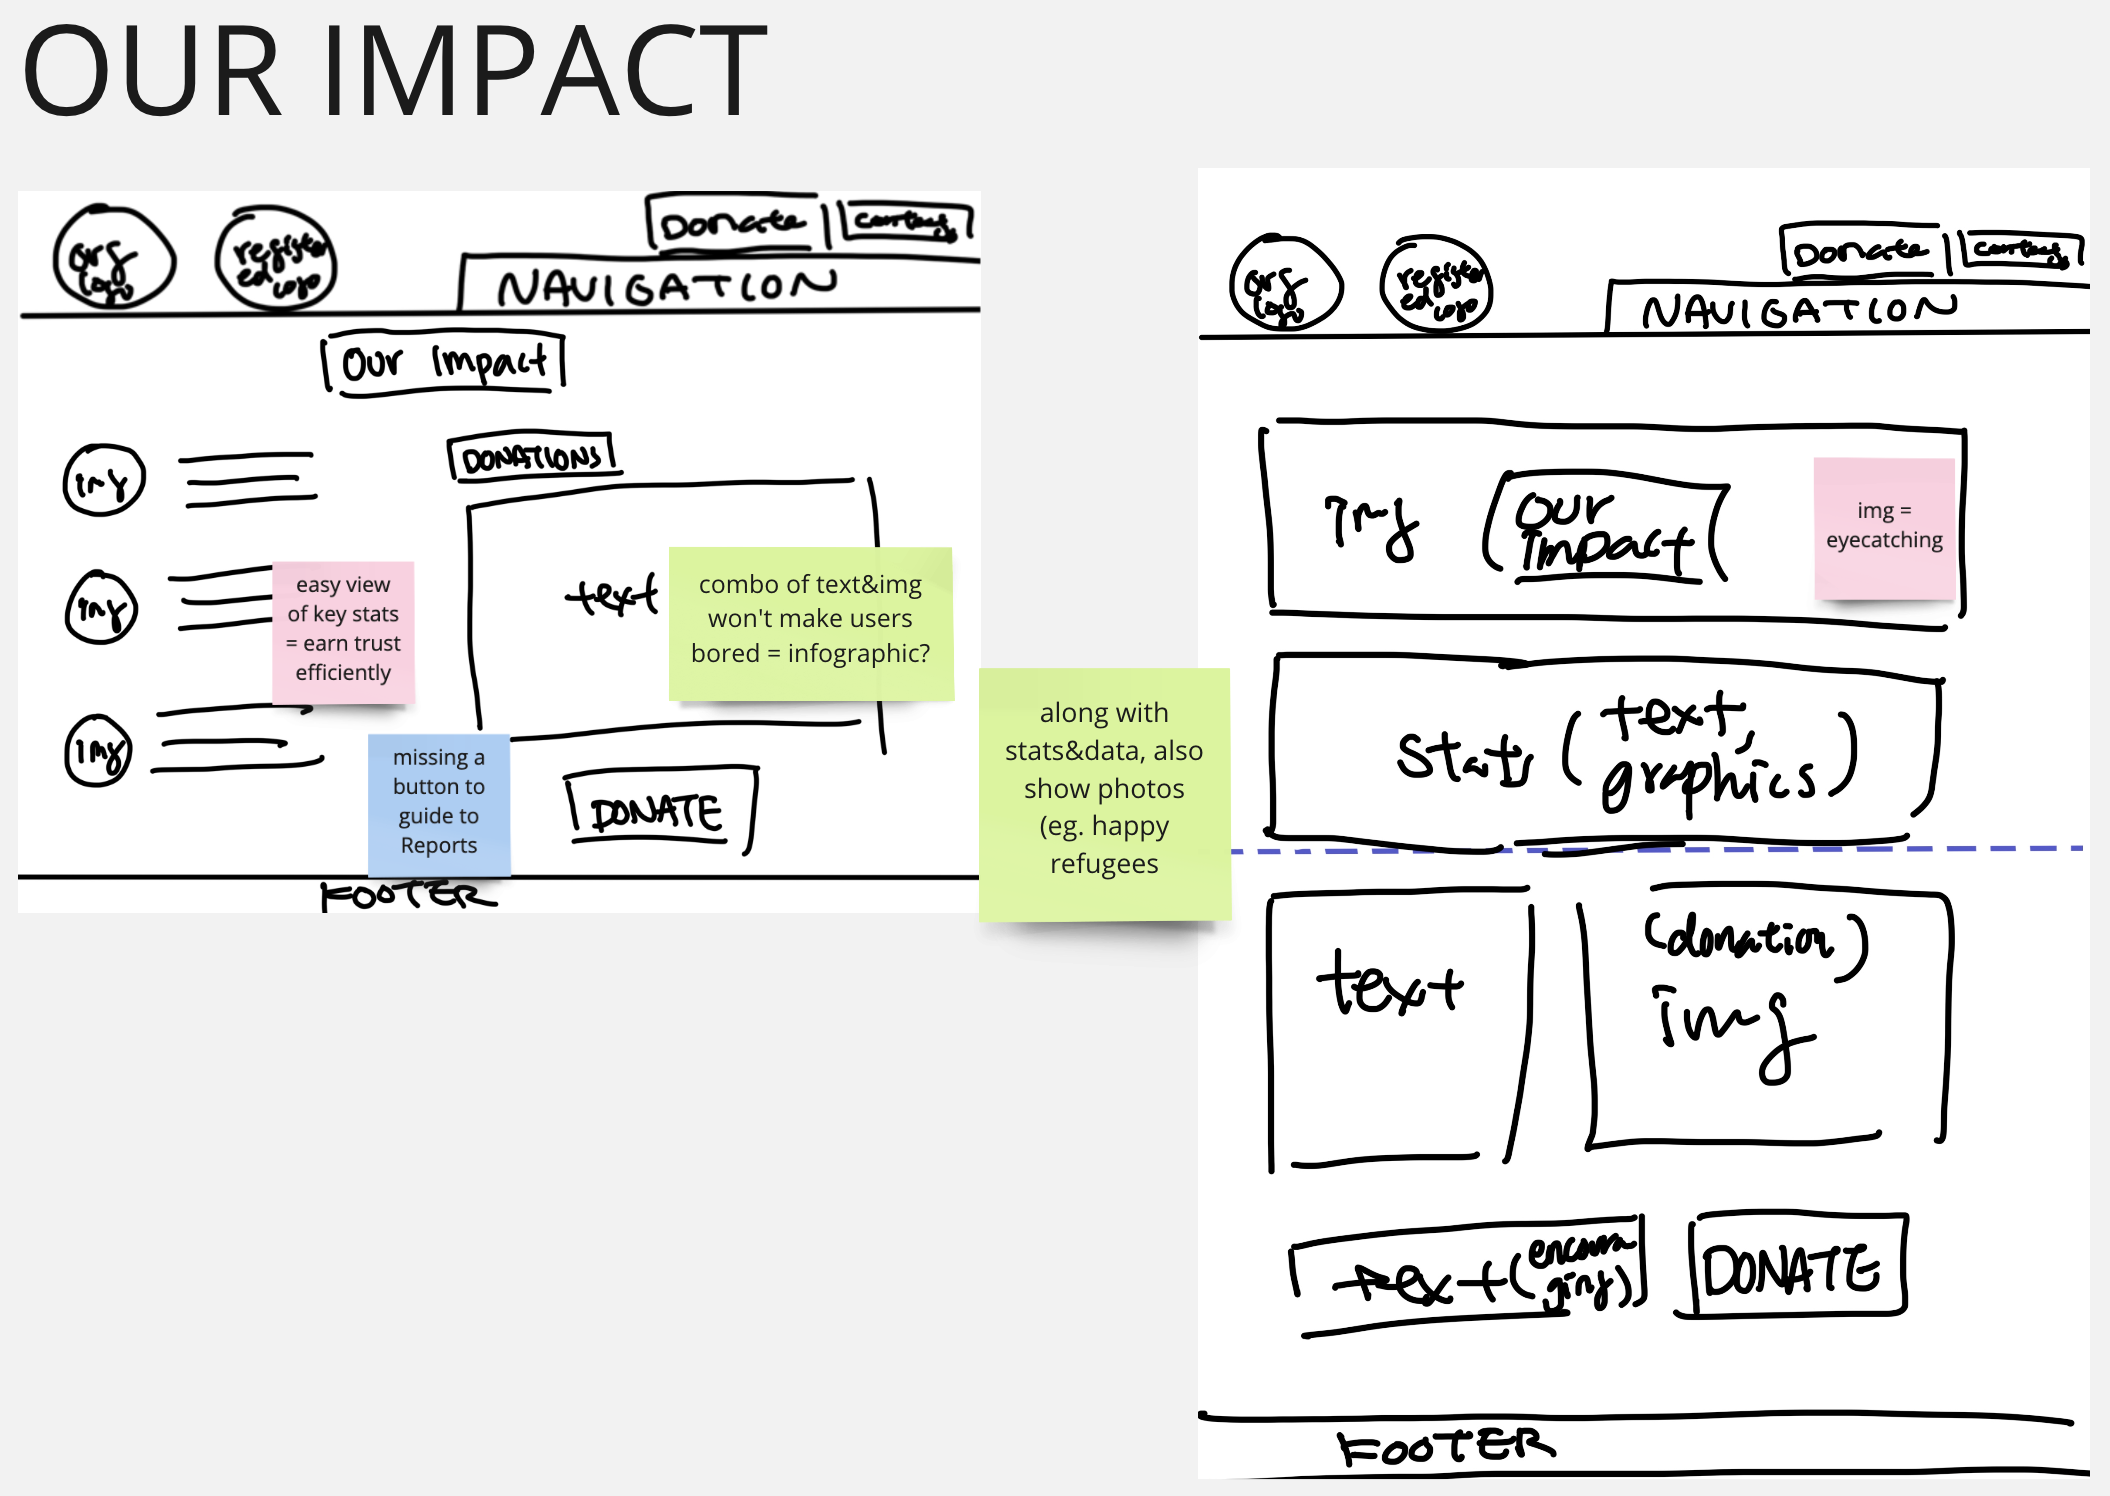 OUR IMPACT
org
logo
register
ed logo
Donate
Contact
us
NAVIGATION
Our Impact
img
DONATIONS
img
text
easy view
of key stats
= earn trust
efficiently
combo of text&img
won't make users
bored = infographic?
img
missing a
button to
guide to
Reports
DONATE
FOOTER
along with
stats&data, also
show photos
(eg. happy
refugees
org
logo
register
ed logo
Donate
Contact
us
NAVIGATION
img
(our
impact)
img =
eyecatching
Stats (text,
graphics)
text
(donation)
img
text (encoura
ging)
DONATE
FOOTER